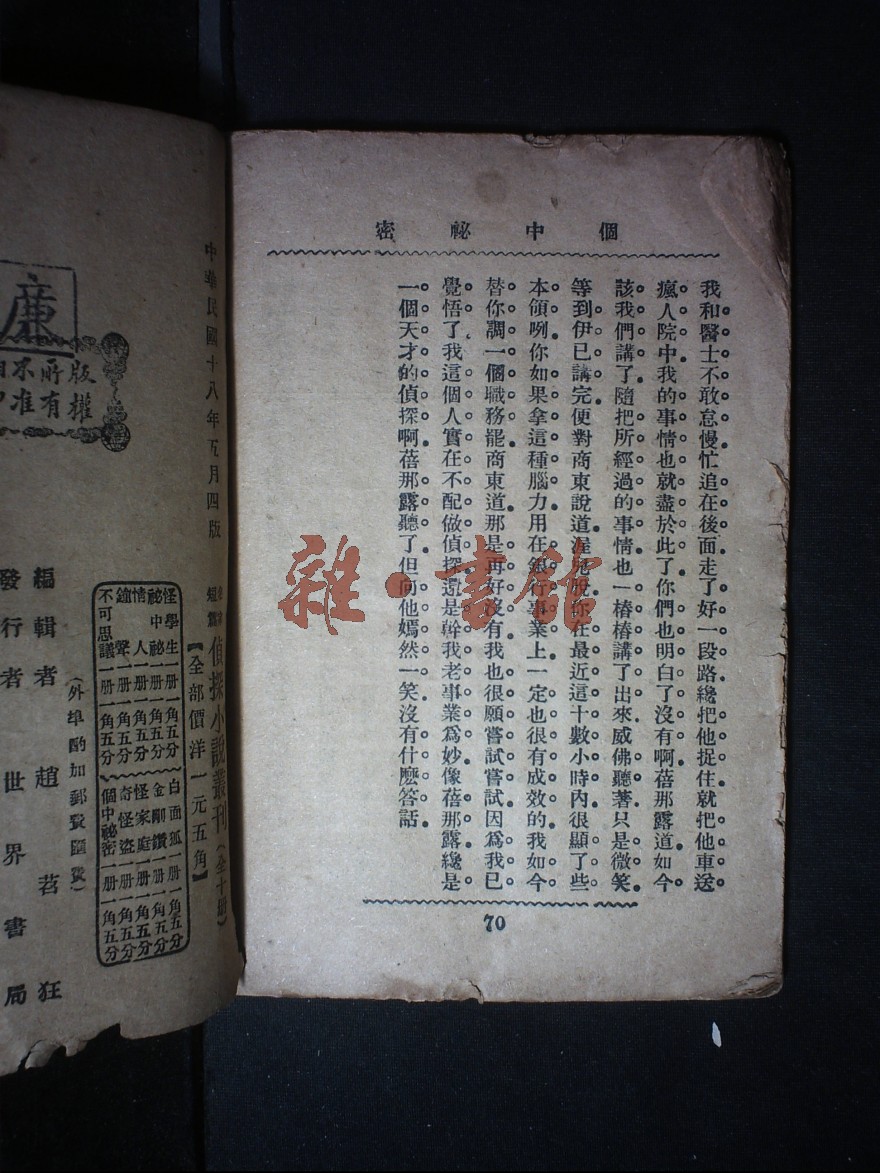 個中祕密
我和醫士不敢怠慢。忙追在後面。走了好一段路。纔把他捉住。就把他車送
瘋人院中。我的事情也就盡於此了。你們也明白了沒有啊。蓓那露道。如今
該我們講了。隨把所經過的事情。也一樁樁講了出來。威佛聽著。只是微笑。
等到伊已講完。便對商東說道。你在最近這十數小時內。很顯了些
本領咧。你如果拿這種腦力。用在銀行事業上。一定也很有成效的。我如今
替你調一個職務罷。商東道。那是再好沒有。我也很願嘗試嘗試。因爲我已
覺悟了。我這個人。實在不配做偵探。還是幹我老事業爲妙。像蓓那露纔是
一個天才的偵探啊。蓓那露聽了。但向他嫣然一笑。沒有什麽答話。
70
中華民國十八年五月四版
偵探小說叢刊(全十册)
【全部價洋一元五角】
怪學生一册一角五分
祕中祕一册一角五分
情人一册一角五分
鐘聲一册一角五分
不可思議一册一角五分
白面狐一册一角五分
金剛鑽一册一角五分
怪家庭一册一角五分
奇怪盜一册一角五分
個中祕密一册一角五分
(外埠酌加郵費匯費)
編輯者 趙苕狂
發行者 世界書局
廉
版權所有不准
雜·書館